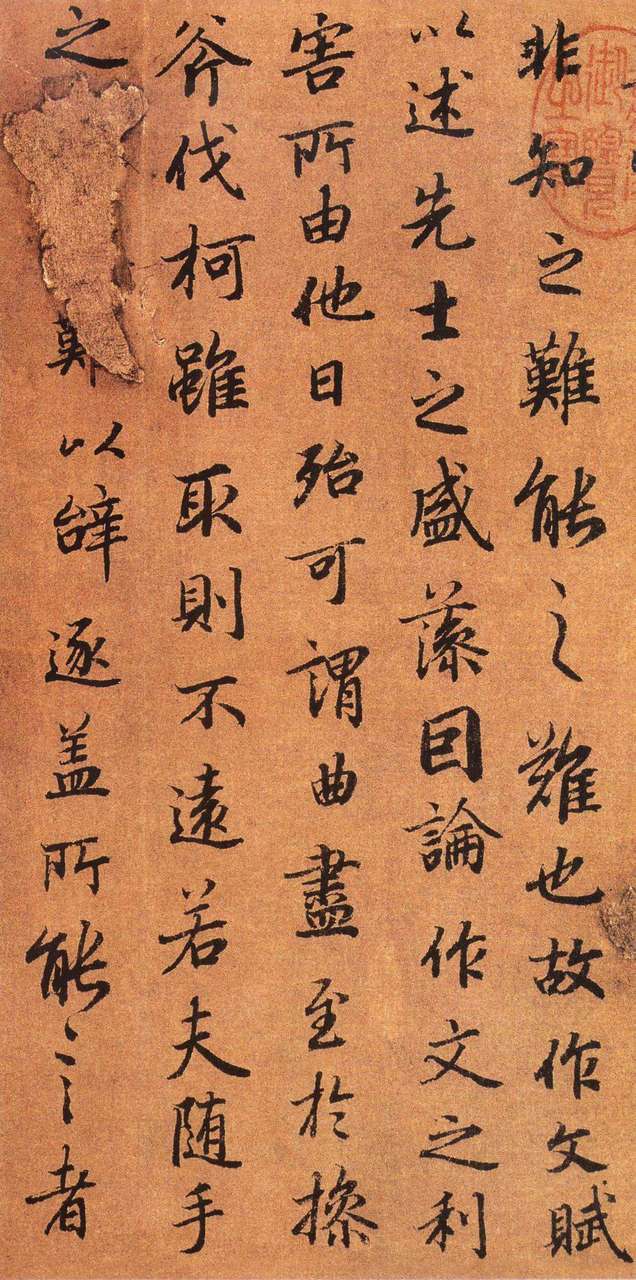 非知之難能之難也故作文賦
以述先士之盛藻因論作文之利
害所由他日殆可謂曲盡至於操
斧伐柯雖取則不遠若夫随手
之 以辭逐盖所能言者